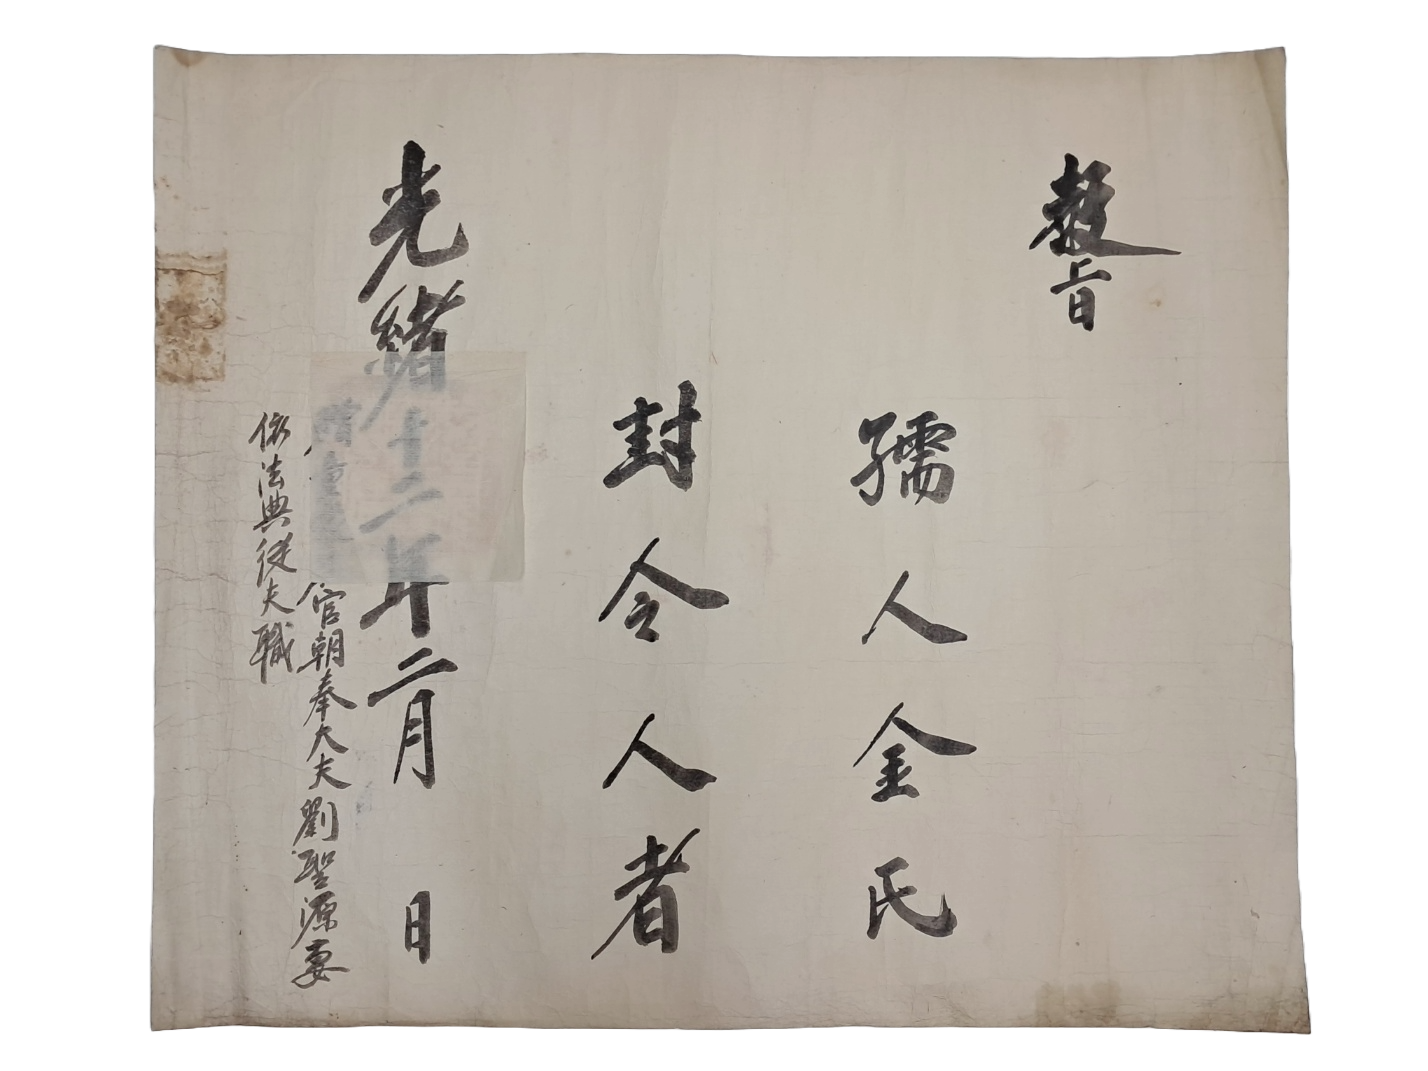 敎旨
孺人金氏
封令人者
光緖十二年二月　日
官朝奉大夫劉聖源妻
依法典從夫職